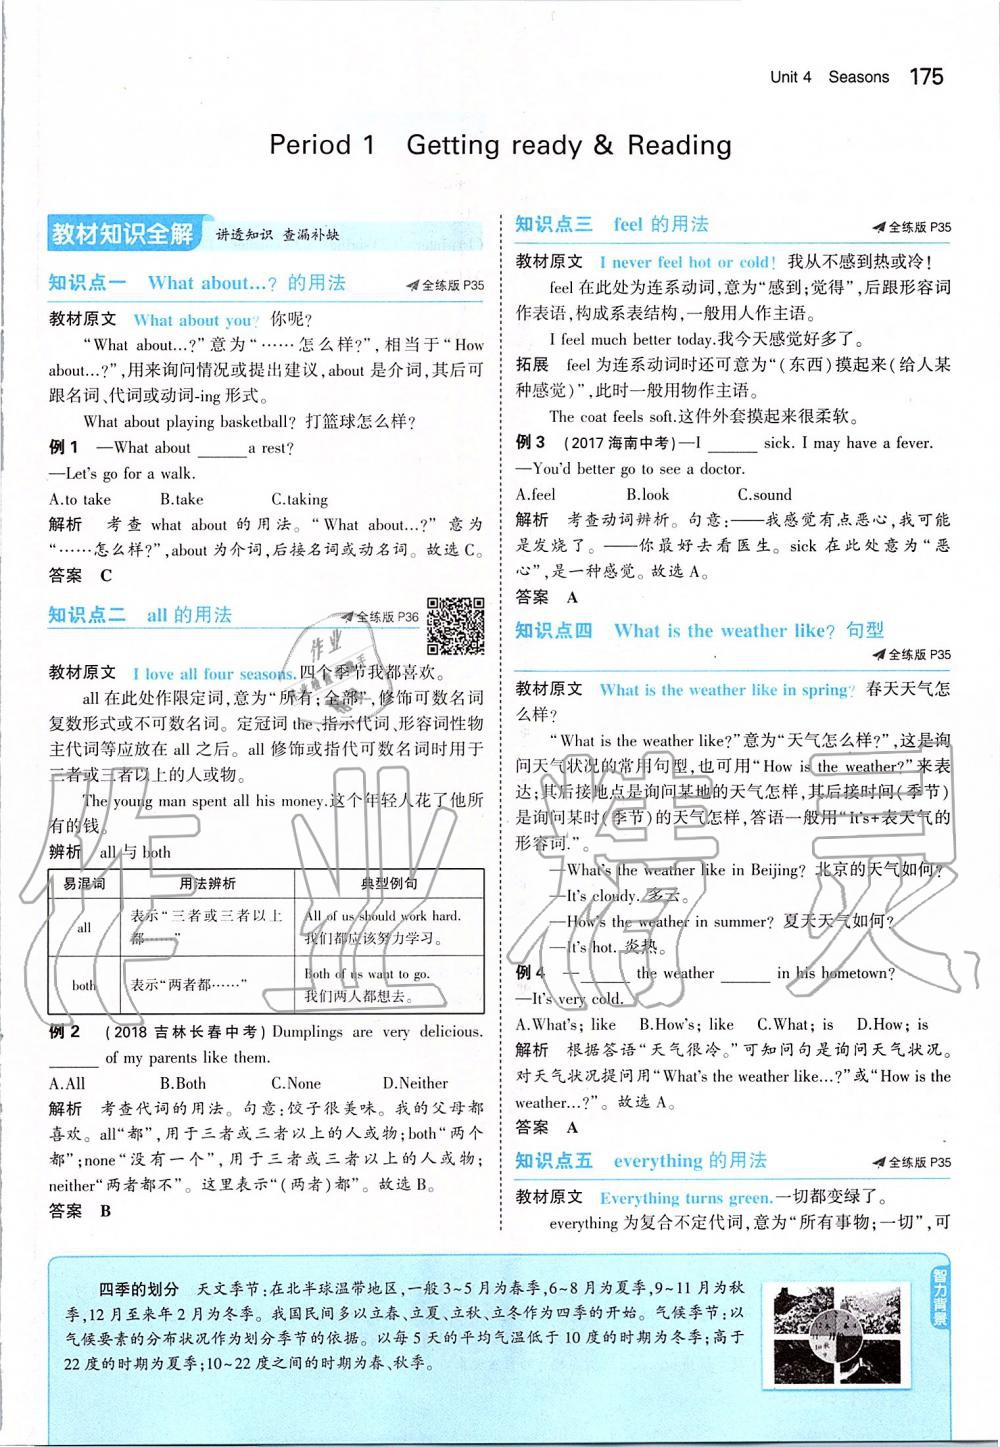 Unit 4 Seasons 175
Period 1 Getting ready & Reading
教材知识全解 讲透知识 查漏补缺
知识点一 What about…? 的用法 全练版 P35
教材原文 What about you? 你呢?
“What about…?”意为“……怎么样?”,相当于“How
about…?”,用来询问情况或提出建议,about 是介词,其后可
跟名词、代词或动词-ing 形式。
What about playing basketball? 打篮球怎么样?
例 1 —What about ______a rest?
—Let's go for a walk.
A.to take B.take C.taking
解析 考查 what about 的用法。“What about…?” 意为
“……怎么样?”,about 为介词,后接名词或动名词。故选 C。
答案 C
知识点二 all 的用法 全练版 P36
教材原文 I love all four seasons.四个季节我都喜欢。
all 在此处作限定词,意为“所有;全部”,修饰可数名词
复数形式或不可数名词。定冠词 the、指示代词、形容词性物
主代词等应放在 all 之后。all 修饰或指代可数名词时用于
三者或三者以上的人或物。
The young man spent all his money.这个年轻人花了他所
有的钱。
辨析 all 与 both
易混词 用法辨析 典型例句
all 表示“三者或三者以上都……” All of us should work hard. 我们都应该努力学习。
both 表示“两者都……” Both of us want to go. 我们两人都想去。
例 2 (2018 吉林长春中考) Dumplings are very delicious.
______ of my parents like them.
A.All B.Both C.None D.Neither
解析 考查代词的用法。句意:饺子很美味。我的父母都
喜欢。all“都”,用于三者或三者以上的人或物;both“两个
都”;none“没有一个”,用于三者或三者以上的人或物;
neither“两者都不”。这里表示“(两者)都”。故选 B。
答案 B
知识点三 feel 的用法 全练版 P35
教材原文 I never feel hot or cold! 我从不感到热或冷!
feel 在此处为连系动词,意为“感到;觉得”,后跟形容词
作表语,构成系表结构,一般用人作主语。
I feel much better today.我今天感觉好多了。
拓展 feel 为连系动词时还可意为“(东西)摸起来(给人某
种感觉)”,此时一般用物作主语。
The coat feels soft.这件外套摸起来很柔软。
例 3 (2017 海南中考)—I ______ sick. I may have a fever.
—You'd better go to see a doctor.
A.feel B.look C.sound
解析 考查动词辨析。句意:——我感觉有点恶心,我可能
是发烧了。——你最好去看医生。sick 在此处意为“恶
心”,是一种感觉。故选 A。
答案 A
知识点四 What is the weather like? 句型
全练版 P35
教材原文 What is the weather like in spring? 春天天气怎
么样?
“What is the weather like?”意为“天气怎么样?”,这是询
问天气状况的常用句型,也可用“How is the weather?”来表
达;其后接地点是询问某地的天气怎样,其后接时间(季节)
是询问某时(季节)的天气怎样,答语一般用“It's+表天气的
形容词.”。
—What's the weather like in Beijing? 北京的天气如何?
—It's cloudy. 多云。
—How's the weather in summer? 夏天天气如何?
—It's hot. 炎热。
例 4 —______ the weather ______ in his hometown?
—It's very cold.
A.What's; like B.How's; like C.What; is D.How; is
解析 根据答语“天气很冷。”可知问句是询问天气状况。
对天气状况提问用“What's the weather like…?”或“How is the
weather…?”。故选 A。
答案 A
知识点五 everything 的用法 全练版 P35
教材原文 Everything turns green.一切都变绿了。
everything 为复合不定代词,意为“所有事物;一切”,可
四季的划分 天文季节:在北半球温带地区,一般 3~5 月为春季,6~8 月为夏季,9~11 月为秋
季,12 月至来年 2 月为冬季。我国民间多以立春、立夏、立秋、立冬作为四季的开始。气候季节:以
气候要素的分布状况作为划分季节的依据。以每 5 天的平均气温低于 10 度的时期为冬季;高于
22 度的时期为夏季;10~22 度之间的时期为春、秋季。
智力背景
作业精灵